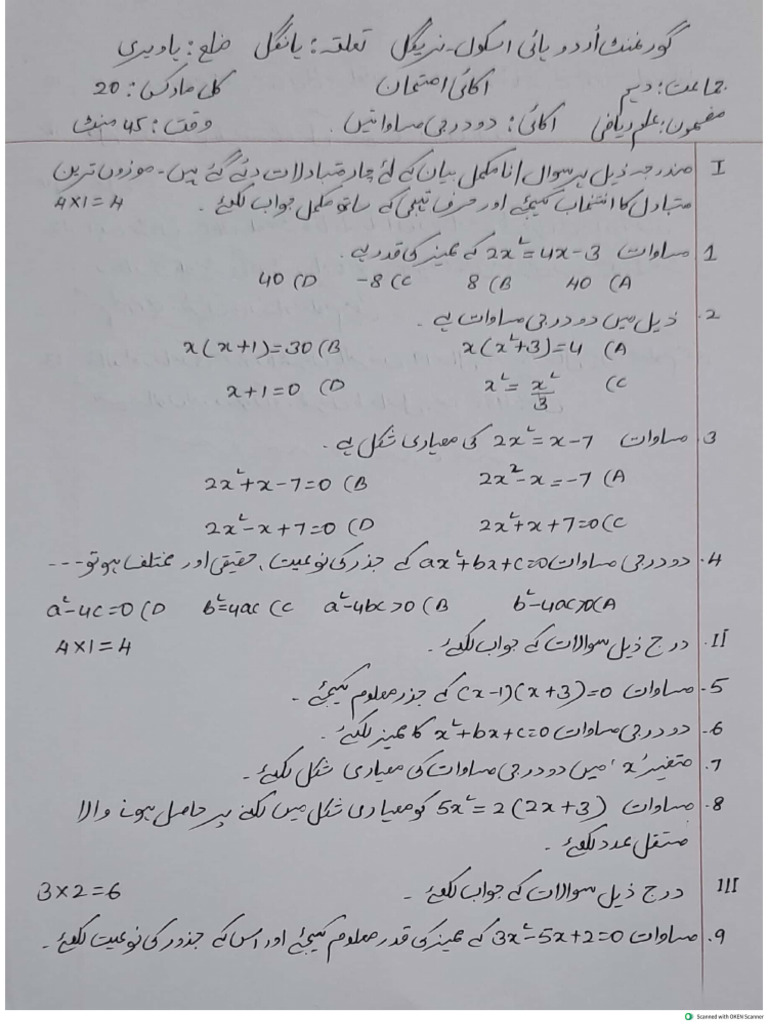 گورنمنٹ اُردو ہائی اسکول۔نریگل تعلقہ: ہانگل ضلع: ہاویری
جماعت: دہم اکائی امتحان کل مارکس: 20
مضمون: علم ریاضی اکائی: دو درجی مساواتیں وقت: 45 منٹ
I مندرجہ ذیل ہر سوال/نا مکمل بیان کے لئے چار متبادلات دئے گئے ہیں۔ موزوں ترین
متبادل کا انتخاب کیجئے اور حرف تہجی کے ساتھ مکمل جواب لکھئے۔ 4×1=4
1 مساوات 2x²=4x-3 کے ممیز کی قدر ہے۔
(A 40 (B 8 (C -8 (D 40
2. ذیل میں دو درجی مساوات ہے۔
(A x(x²+3)=4 (B x(x+1)=30
(C x²=x²/3 (D x+1=0
3 مساوات 2x²=x-7 کی معیاری شکل ہے۔
(A 2x²-x=-7 (B 2x²+x-7=0
(C 2x²+x+7=0 (D 2x²-x+7=0
4. دو درجی مساوات ax²+bx+c=0 کے جذر کی نوعیت، حقیقی اور مختلف ہو تو ---
(A b²-4ac>0 (B a²-4bc>0 (C b²=4ac (D a²-4c=0
II. درج ذیل سوالات کے جواب لکھئے۔ 4×1=4
5. مساوات (x-1)(x+3)=0 کے جذر معلوم کیجئے۔
6. دو درجی مساوات x²+bx+c=0 کا ممیز لکھئے۔
7. متغیر 'x' میں دو درجی مساوات کی معیاری شکل لکھئے۔
8. مساوات 5x²=2(2x+3) کو معیاری شکل میں لکھنے پر حاصل ہونے والا
مستقل عدد لکھئے۔
III درج ذیل سوالات کے جواب لکھئے۔ 3×2=6
9. مساوات 3x²-5x+2=0 کے ممیز کی قدر معلوم کیجئے اور اس کے جذور کی نوعیت لکھئے۔
Scanned with OKEN Scanner